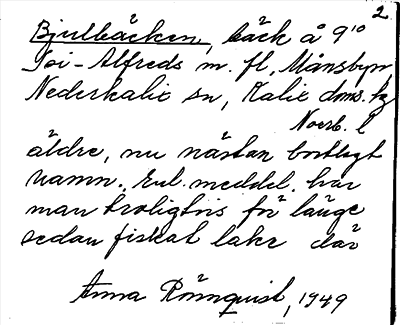 2.
Bjulbäcken, bäck å 9¹⁰
Toi-Alfreds m. fl, Månsbyn
Nederkalix sn, Kalix dms. tg
Norrb. l
äldre, nu nästan bortlagt
namn. Enl. meddel. har
man troligtvis för länge
sedan fiskat lake där
Anna Rönnquist, 1949